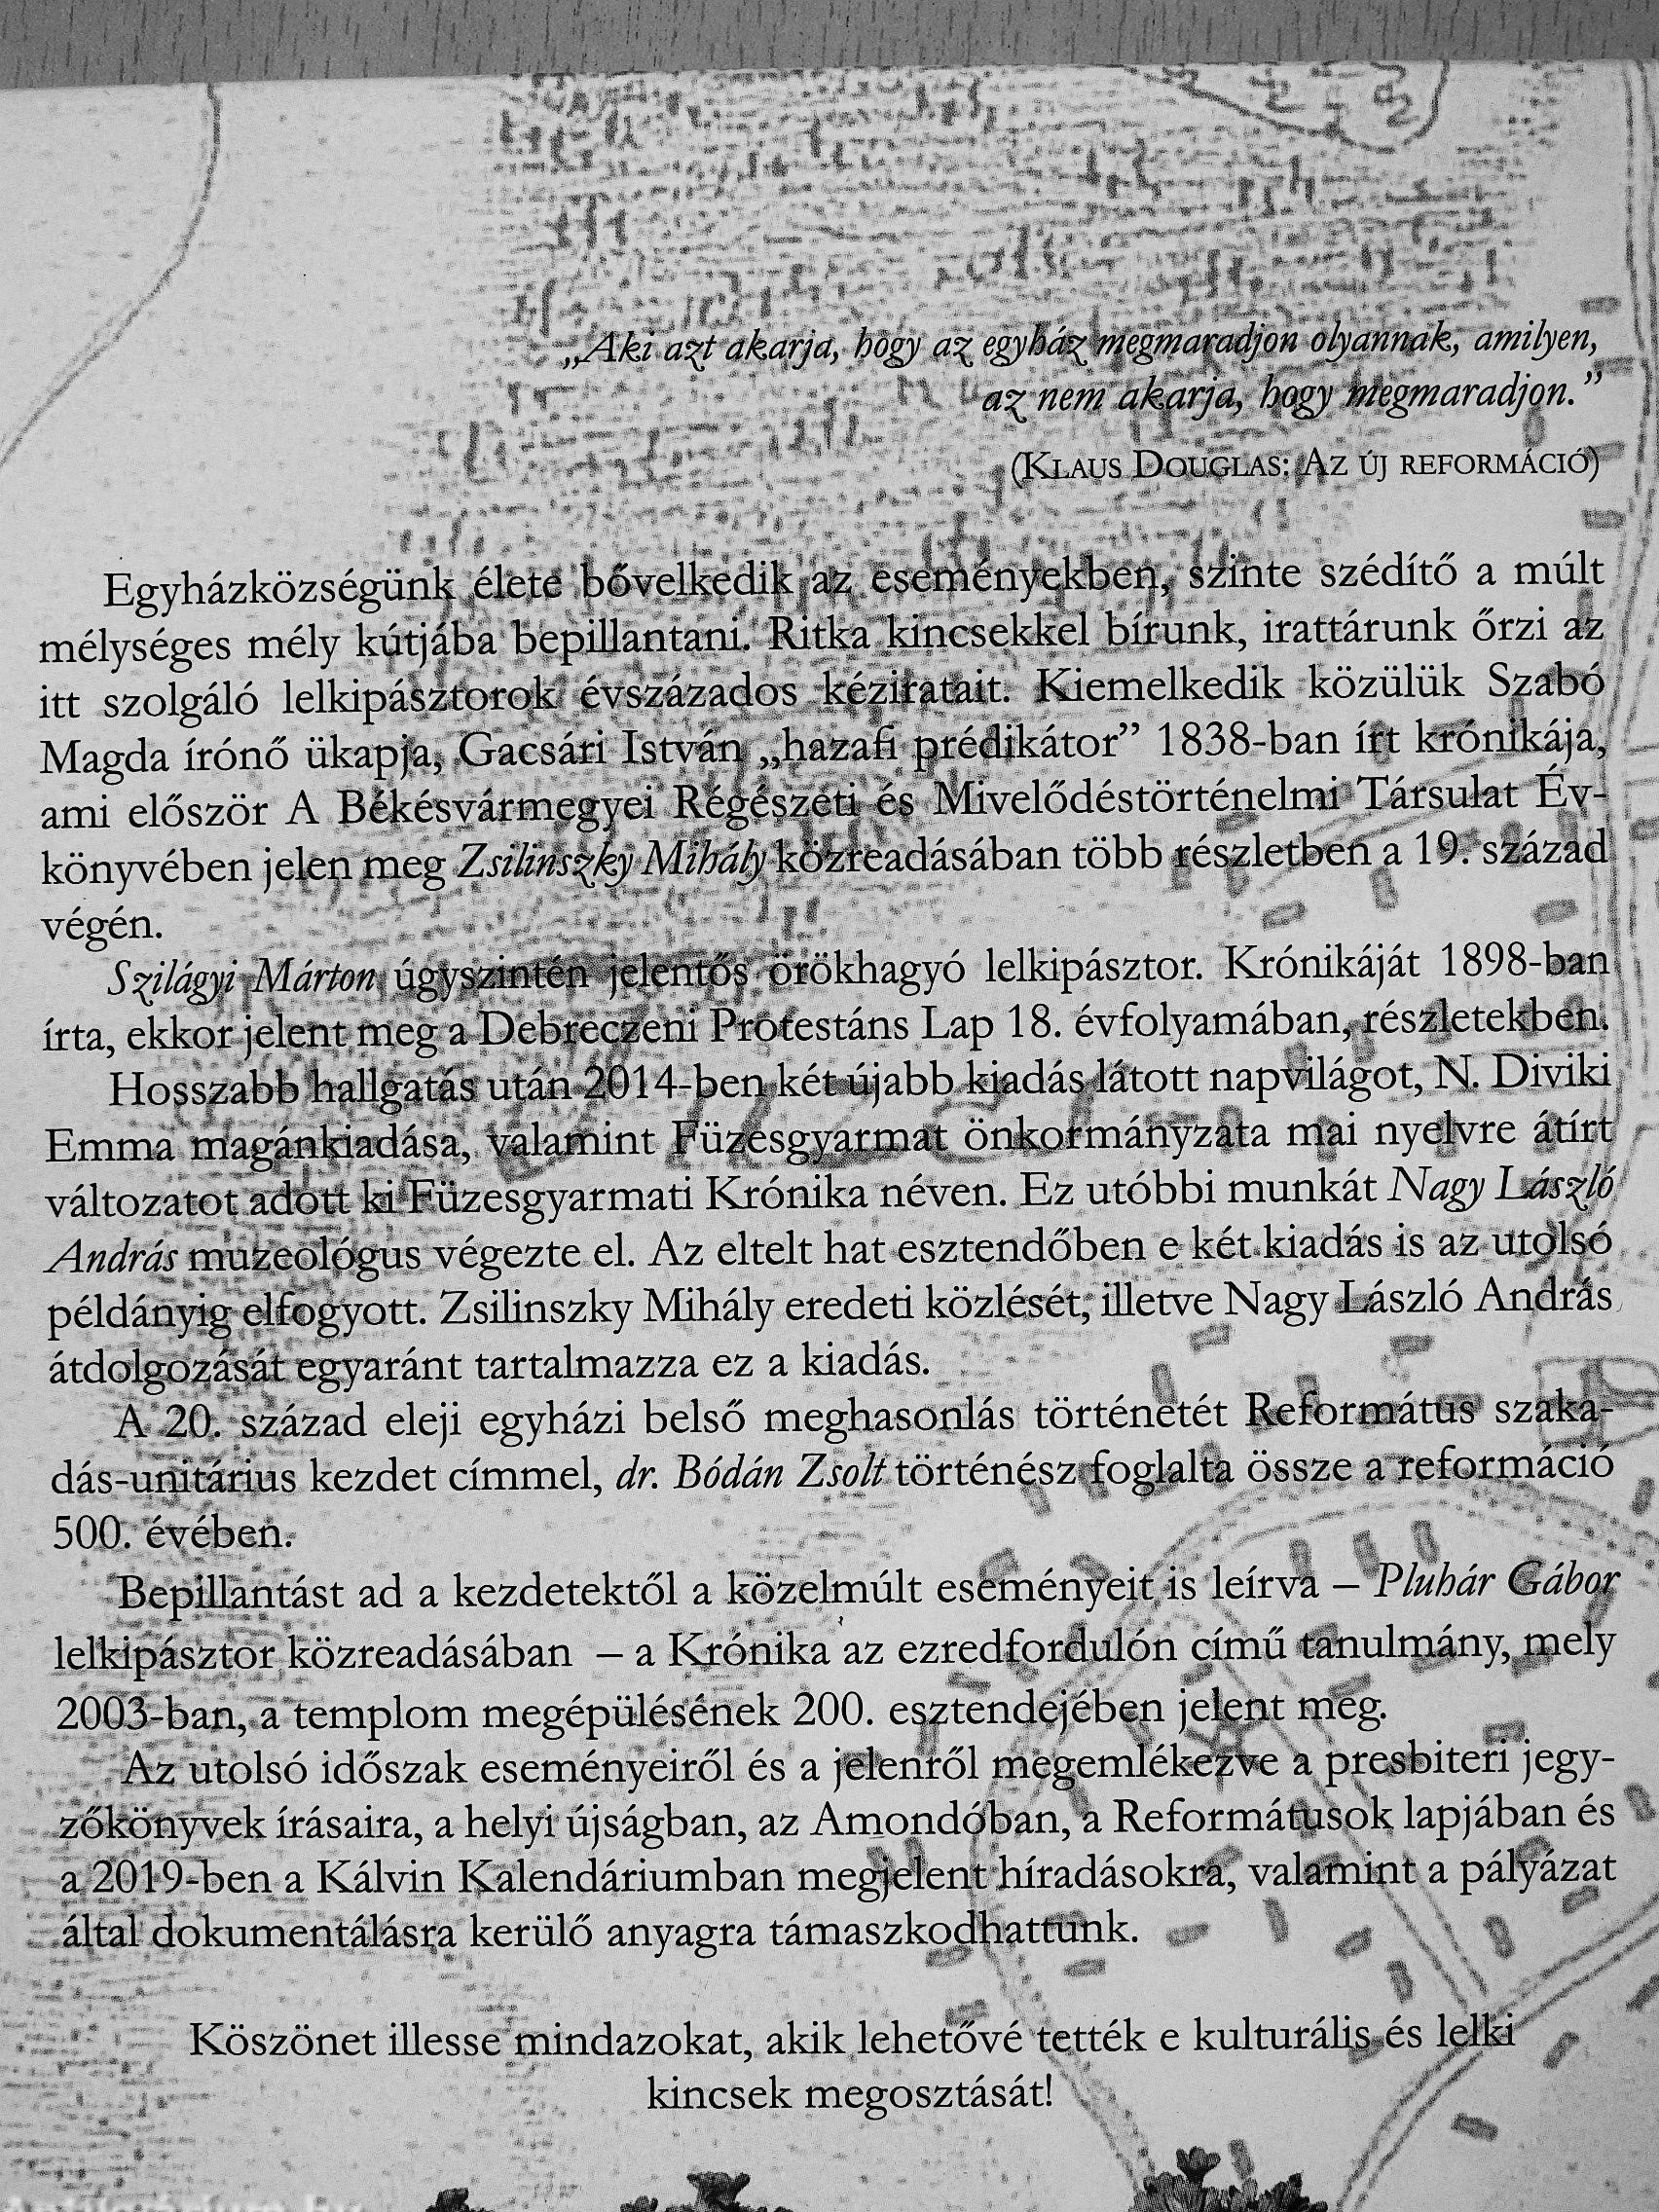 „Aki azt akarja, hogy az egyház megmaradjon olyannak, amilyen,
az nem akarja, hogy megmaradjon.”
(KLAUS DOUGLAS: AZ ÚJ REFORMÁCIÓ)
Egyházközségünk élete bővelkedik az eseményekben, szinte szédítő a múlt
mélységes mély kútjába bepillantani. Ritka kincsekkel bírunk, irattárunk őrzi az
itt szolgáló lelkipásztorok évszázados kéziratait. Kiemelkedik közülük Szabó
Magda írónő ükapja, Gacsári István „hazafi prédikátor” 1838-ban írt krónikája,
ami először A Békésvármegyei Régészeti és Mivelődéstörténelmi Társulat Év-
könyvében jelen meg Zsilinszky Mihály közreadásában több részletben a 19. század
végén.
Szilágyi Márton úgyszintén jelentős örökhagyó lelkipásztor. Krónikáját 1898-ban
írta, ekkor jelent meg a Debreczeni Protestáns Lap 18. évfolyamában, részletekben.
Hosszabb hallgatás után 2014-ben két újabb kiadás látott napvilágot, N. Diviki
Emma magánkiadása, valamint Füzesgyarmat önkormányzata mai nyelvre átírt
változatot adott ki Füzesgyarmati Krónika néven. Ez utóbbi munkát Nagy László
András muzeológus végezte el. Az eltelt hat esztendőben e két kiadás is az utolsó
példányig elfogyott. Zsilinszky Mihály eredeti közlését, illetve Nagy László András
átdolgozását egyaránt tartalmazza ez a kiadás.
A 20. század eleji egyházi belső meghasonlás történetét Református szaka-
dás-unitárius kezdet címmel, dr. Bódán Zsolt történész foglalta össze a reformáció
500. évében.
Bepillantást ad a kezdetektől a közelmúlt eseményeit is leírva – Pluhár Gábor
lelkipásztor közreadásában – a Krónika az ezredfordulón című tanulmány, mely
2003-ban, a templom megépülésének 200. esztendejében jelent meg.
Az utolsó időszak eseményeiről és a jelenről megemlékezve a presbiteri jegy-
zőkönyvek írásaira, a helyi újságban, az Amondóban, a Reformátusok lapjában és
a 2019-ben a Kálvin Kalendáriumban megjelent híradásokra, valamint a pályázat
által dokumentálásra kerülő anyagra támaszkodhattunk.
Köszönet illesse mindazokat, akik lehetővé tették e kulturális és lelki
kincsek megosztását!